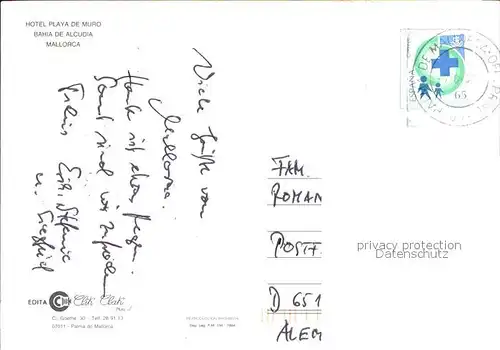 HOTEL PLAYA DE MURO
BAHIA DE ALCUDIA
MALLORCA
Viele Grüße von
Mallorca.
Heute ist etwas Regen.
Sonst sind wir zufrieden
Erik, Stefanie
u. Siegfried
ESPAÑA
FAM.
ROMAN
POSTF
D 651
ALEM
privacy protection
Datenschutz
EDITA Clik Clak
07011 - Palma de Mallorca